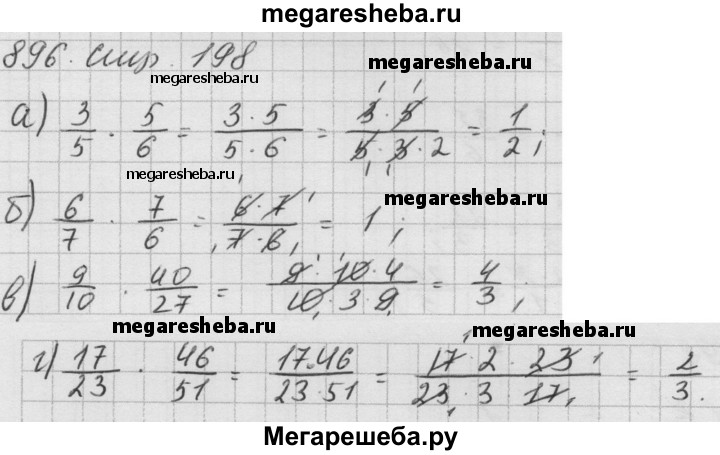 megaresheba.ru
896. стр. 198
megaresheba.ru megaresheba.ru
а) 3/5 · 5/6 = 3 · 5 / 5 · 6 = 3 · 5 / 5 · 3 · 2 = 1/2;
megaresheba.ru
megaresheba.ru
б) 6/7 · 7/6 = 6 · 7 / 7 · 6 = 1;
в) 9/10 · 40/27 = 9 · 10 · 4 / 10 · 3 · 9 = 4/3;
megaresheba.ru megaresheba.ru
г) 17/23 · 46/51 = 17 · 46 / 23 · 51 = 17 · 2 · 23 / 23 · 3 · 17 = 2/3.
Мегарешеба.ру